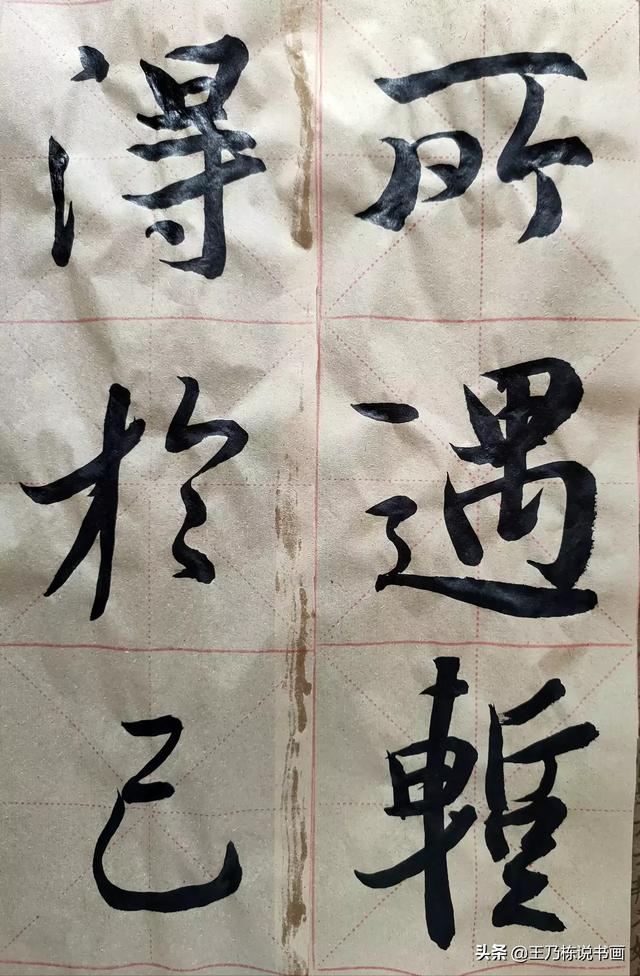 所遇暫
得於己
头条 @王乃栋说书画